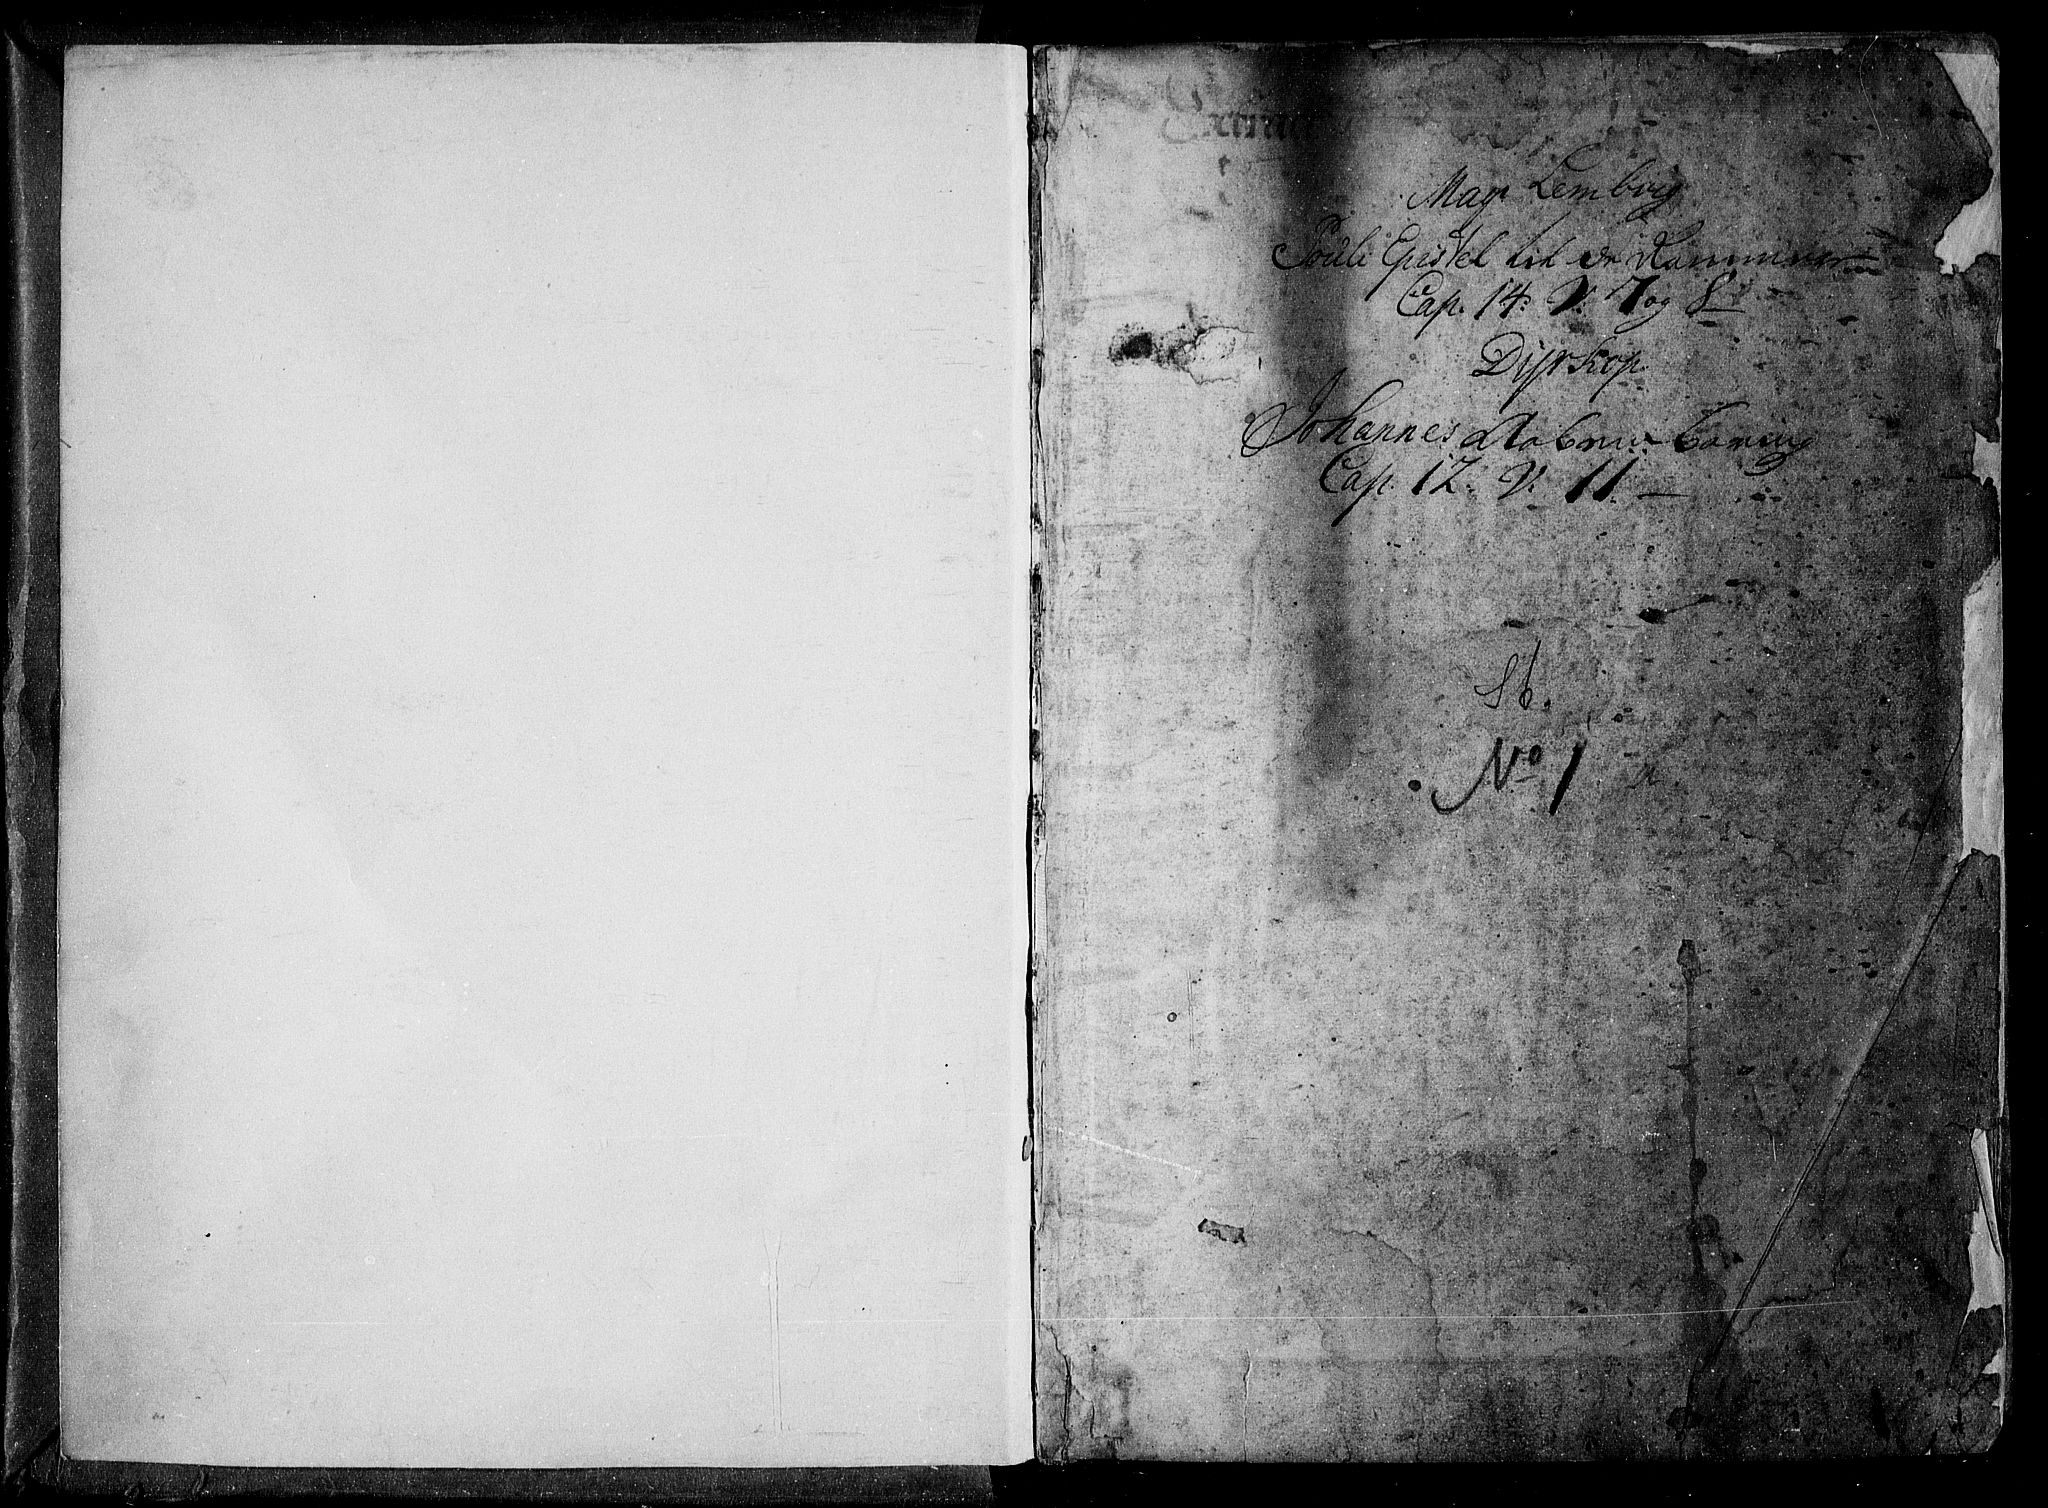 Mag. Lemvig
Pouli Epistel til de Rommere
Cap. 14. V. 7 og 8
Dyrkop.
Johannes Aabenbaring
Cap. 12. V. 11. —
No 1